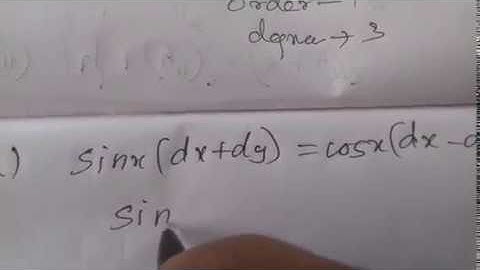 order – 1
degree → 3
) sinx (dx+dy) = cosx(dx – d
sin